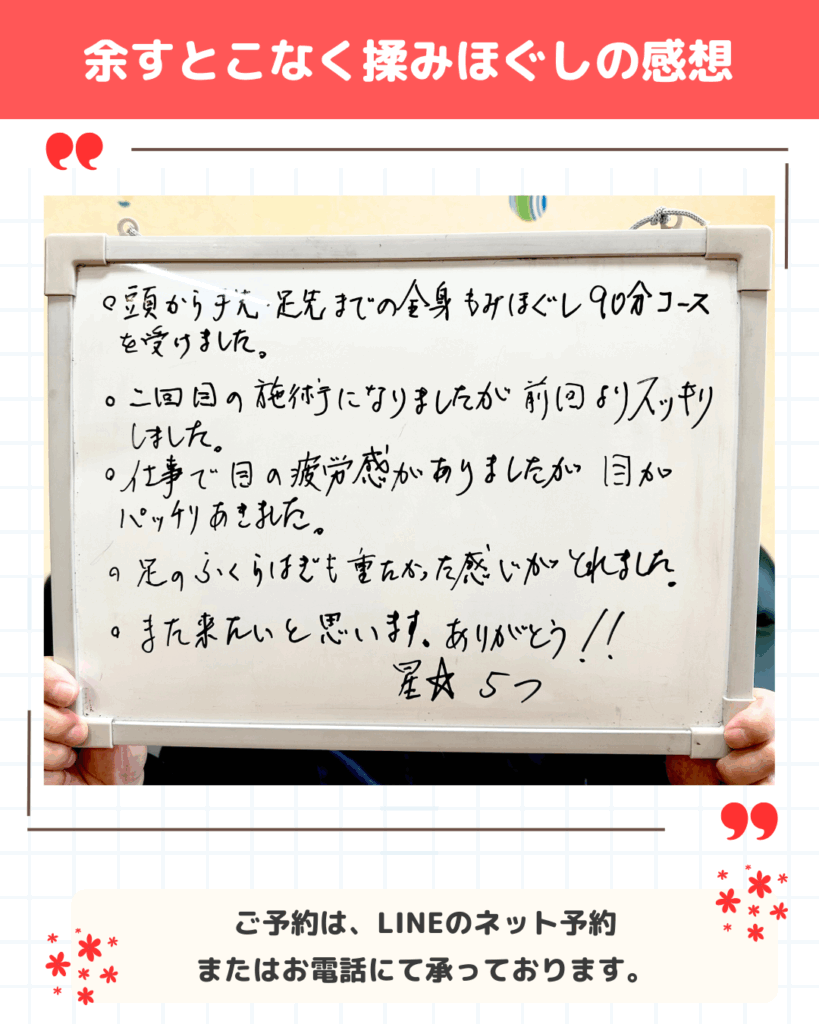 余すとこなく揉みほぐしの感想
。頭から手先・足先までの全身もみほぐし90分コース
を受けました。
。二回目の施術になりましたが前回よりスッキリ
しました。
。仕事で目の疲労感がありましたが目が
パッチリあきました。
。足のふくらはぎも重たかった感じがとれました。
。また来たいと思います。ありがとう!!
星☆5つ
ご予約は、LINEのネット予約
またはお電話にて承っております。